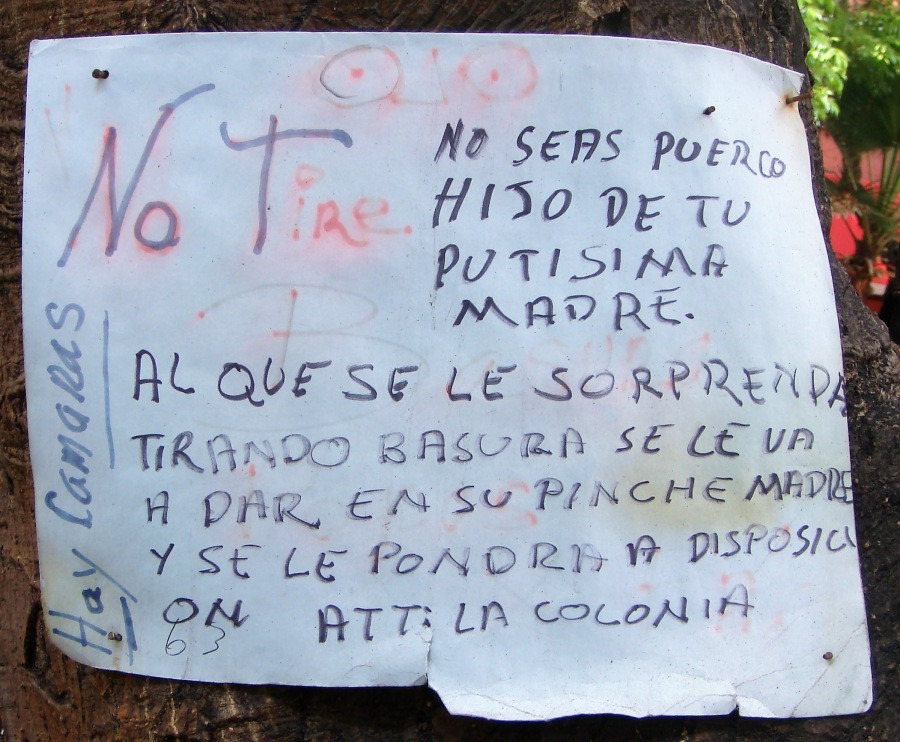 OJO
No Tire.
NO SEAS PUERCO
HIJO DE TU
PUTISIMA
MADRE.
AL QUE SE LE SORPRENDA
TIRANDO BASURA SE LE VA
A DAR EN SU PINCHE MADRE
Y SE LE PONDRA A DISPOSICI
ON ATT: LA COLONIA
63
Hay Camaras